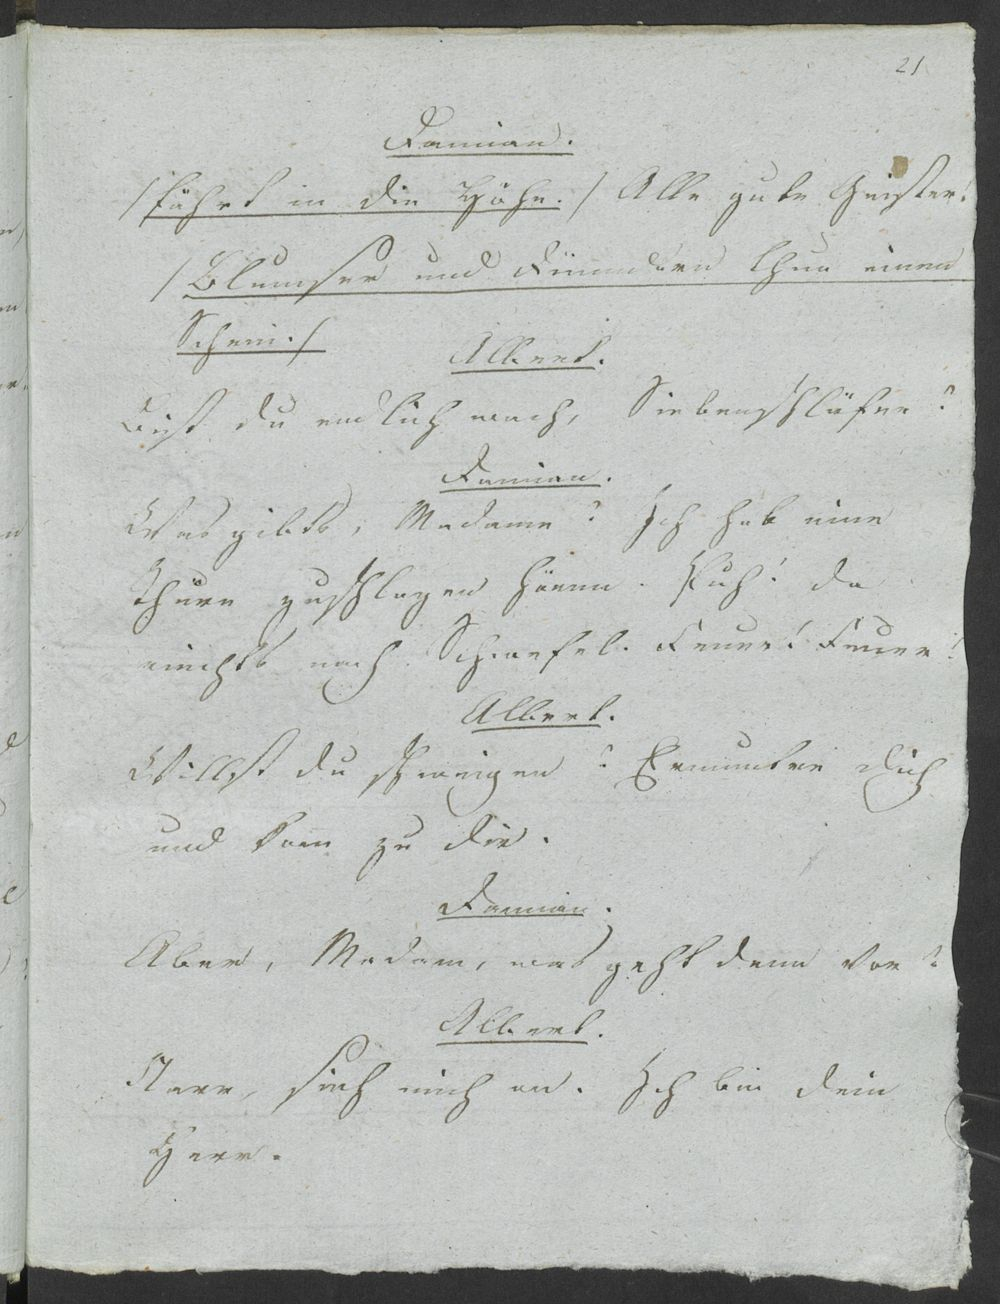 21
Damian.
/fährt in die Höhe./ Alle gute Geister!
/Blumser und Dümmdorn thun einen
Schrei./
Albert.
Bist du endlich wach, Siebenschläfer?
Damian.
Was gibts, Madame? Ich hab eine
Thüre zuschlagen hören. Puh! da
riechts nach Schwefel. Feuer! Feuer!
Albert.
Willst du schweigen? Ermuntre dich
und kom zu dir.
Damian.
Aber, Madam, was geht denn vor?
Albert.
Narr, sieh mich an. Ich bin dein
Herr.